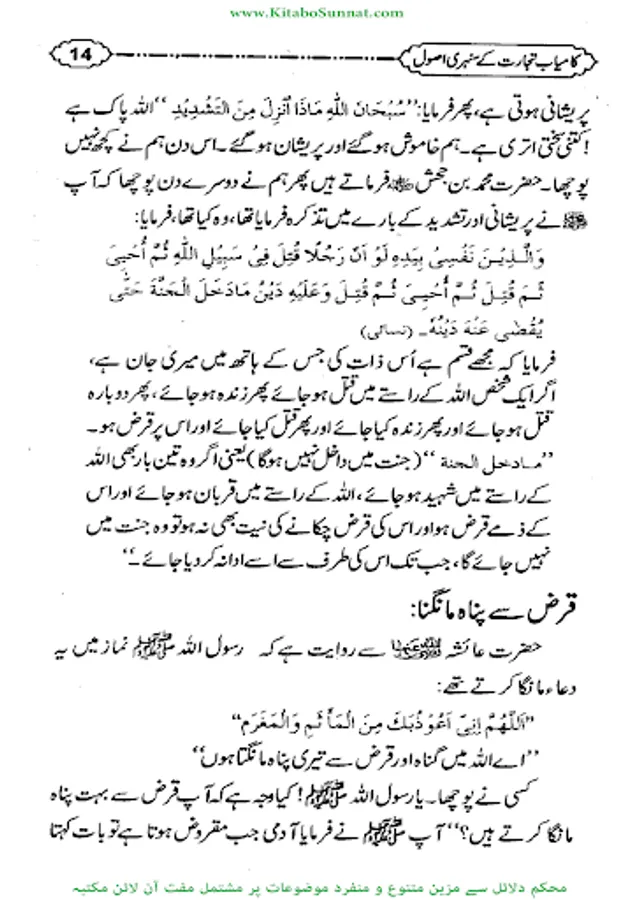 www.KitaboSunnat.com
کامیاب تجارت کے سنہری اصول
14
پریشانی ہوتی ہے، پھر فرمایا: ”سُبْحَانَ اللّٰهِ مَاذَا اُنْزِلَ مِنَ التَّشْدِيْدِ“ اللہ پاک ہے
! کتنی سختی اتری ہے۔ ہم خاموش ہوگئے اور پریشان ہوگئے۔ اس دن ہم نے کچھ نہیں
پوچھا۔ حضرت محمد بن جحش ؓ فرماتے ہیں پھر ہم نے دوسرے دن پوچھا کہ آپ
ﷺ نے پریشانی اور تشدید کے بارے میں تذکرہ فرمایا تھا، وہ کیا تھا، فرمایا:
وَالَّذِيْنَ نَفْسِىْ بِيَدِهٖ لَوْ اَنَّ رَجُلًا قُتِلَ فِىْ سَبِيْلِ اللّٰهِ ثُمَّ اُحْيِىَ
ثُمَّ قُتِلَ ثُمَّ اُحْيِىَ ثُمَّ قُتِلَ وَعَلَيْهِ دَيْنٌ مَادَخَلَ الْجَنَّةَ حَتّٰى
يُقْضٰى عَنْهُ دَيْنُهٗ۔ (نسائی)
فرمایا کہ مجھے قسم ہے اُس ذات کی جس کے ہاتھ میں میری جان ہے،
اگر ایک شخص اللہ کے راستے میں قتل ہوجائے پھر زندہ ہوجائے، پھر دوبارہ
قتل ہوجائے اور پھر زندہ کیا جائے اور پھر قتل کیا جائے اور اس پر قرض ہو۔
”مادخل الجنة“ (جنت میں داخل نہیں ہوگا) یعنی اگر وہ تین بار بھی اللہ
کے راستے میں شہید ہوجائے، اللہ کے راستے میں قربان ہوجائے اور اس
کے ذمے قرض ہو اور اس کی قرض چکانے کی نیت بھی نہ ہو تو وہ جنت میں
نہیں جائے گا، جب تک اس کی طرف سے اسے ادا نہ کردیا جائے۔“
قرض سے پناہ مانگنا:
حضرت عائشہ ؓ سے روایت ہے کہ رسول اللہ ﷺ نماز میں یہ
دعاء مانگا کرتے تھے:
”اَللّٰهُمَّ اِنِّىْ اَعُوْذُبِكَ مِنَ الْمَأْثَمِ وَالْمَغْرَمِ“
”اے اللہ میں گناہ اور قرض سے تیری پناہ مانگتا ہوں“
کسی نے پوچھا۔ یا رسول اللہ ﷺ! کیا وجہ ہے کہ آپ قرض سے بہت پناہ
مانگا کرتے ہیں؟“ آپ ﷺ نے فرمایا آدمی جب مقروض ہوتا ہے تو بات کہتا
محکم دلائل سے مزین متنوع و منفرد موضوعات پر مشتمل مفت آن لائن مکتبہ